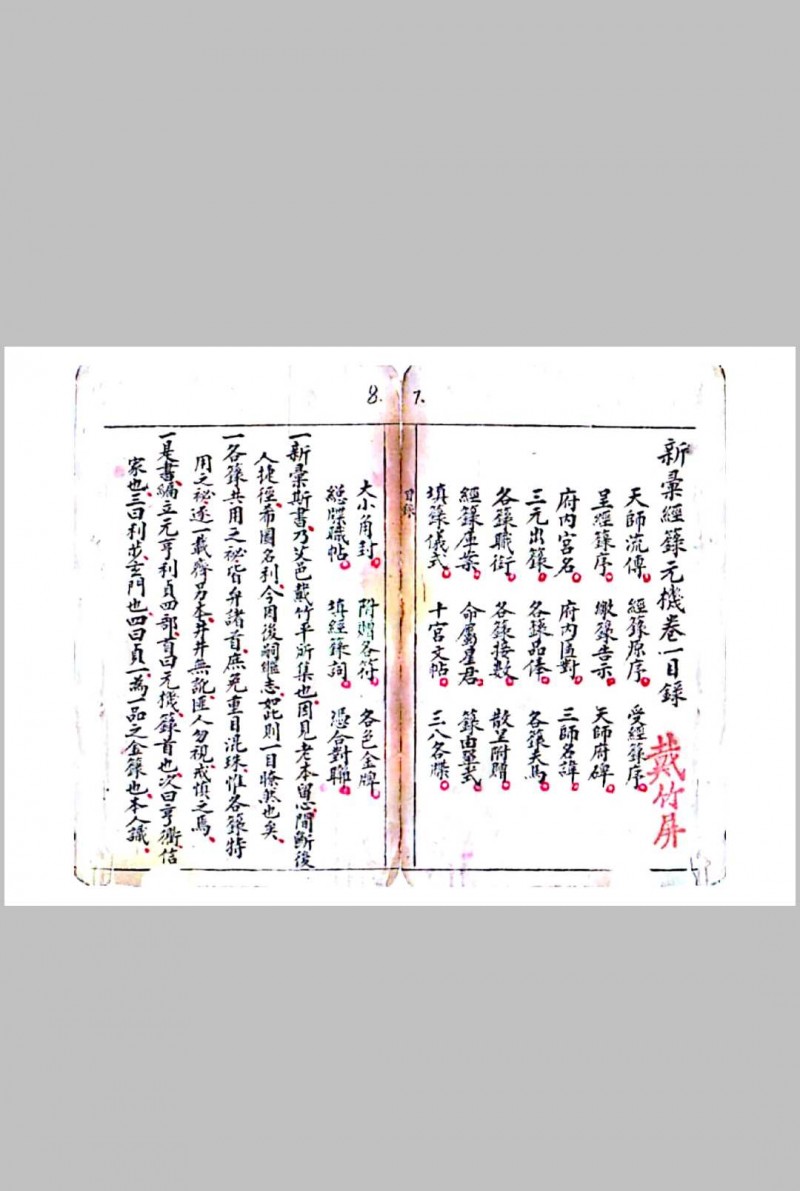 7.
新彙經籙元機卷一目錄
戴竹屏
天師流傳 經籙原序 受經籙序
呈經籙序 繳籙告示 天師府碑
府內宮名 府內匾對 三師名諱
三元出籙 各籙品俸 各籙天馬
各籙職銜 各籙接數 散呈附贈
經籙庫案 命屬星君 籙由單式
填籙儀式 十宮文帖 三八各牒
目錄
8.
大小角封 附贈各符 各色金牌
總牒職帖 填經籙詞 憑合對聯
一新彙斯書乃艾邑戴竹平所集也因見老本留心間斷後
人捷徑希圖名利今用後嗣繼志如此則一目暸然也矣
一各籙共用之秘皆弁諸首庶免重目混珠惟各籙特
用之秘逐一載齊另本井井無訛匪人勿視戒慎之焉
一是書編立元亨利貞四部首曰元機籙首也次曰亨衢信
家也三曰利步玄門也四曰貞一為一品之金籙也本人識